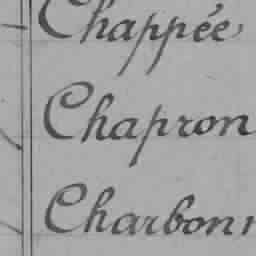 Chappée
Chapron
Charbon